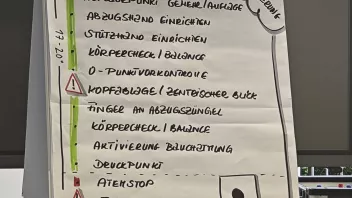 GEWEHR/AUFLAGE
ABZUGSHAND EINRICHTEN
STÜTZHAND EINRICHTEN
KÖRPERCHECK/BALANCE
0-PUNKTVORKONTROLLE
KOPFABLAGE/ZENTRISCHER BLICK
FINGER AN ABZUGSZÜNGEL
KÖRPERCHECK/BALANCE
AKTIVIERUNG BAUCHATMUNG
DRUCKPUNKT
ATEMSTOP
17-20"